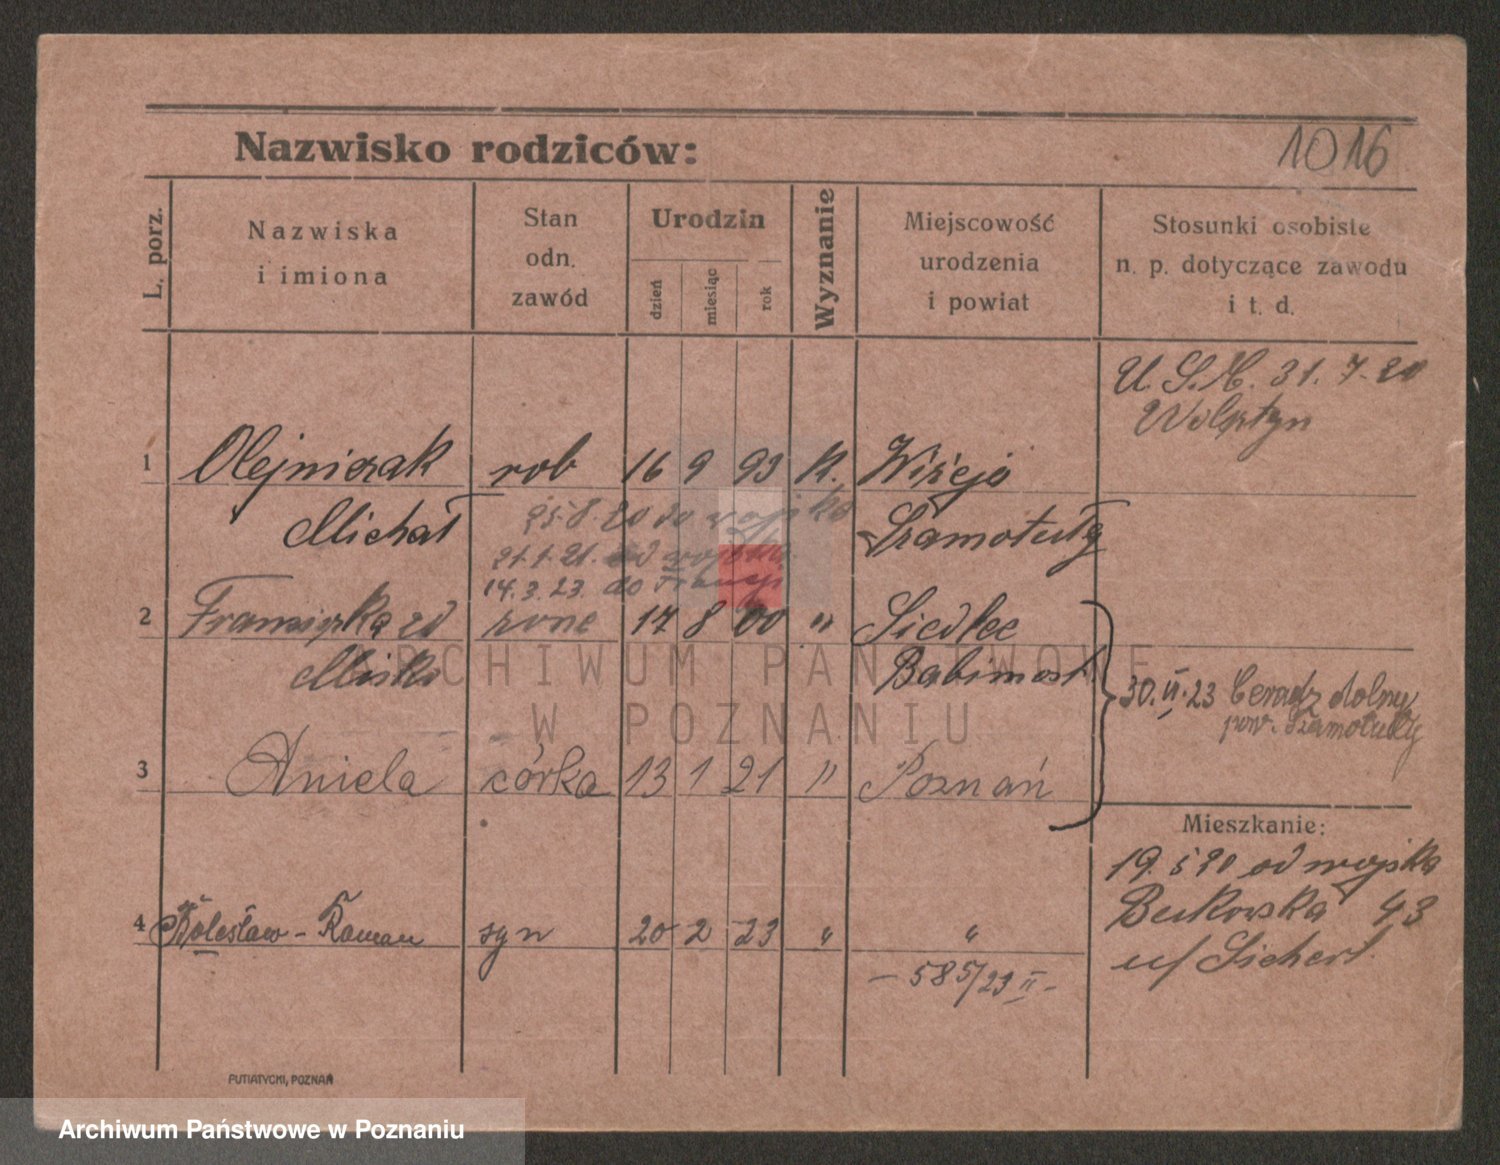 Nazwisko rodziców:
1016
L. porz.
Nazwiska
i imiona
Stan
odn.
zawód
Urodzin
dzień
miesiąc
rok
Wyznanie
Miejscowość
urodzenia
i powiat
Stosunki osobiste
n. p. dotyczące zawodu
i t. d.
U. S. C. 31. 7. 20
Wolsztyn
1 Olejniczak rob 16 9 93 K.
Michał 25.8.20 do wojska Szamotuły
21.1.21. od wojska
14.3.23. do Francji
2 Franciszka zd żone 17 8 00 " Siedlec
Babimost
30. VI. 23 Ceradz dolny
pow. Szamotuły
3 Aniela córka 13 1 21 " Poznań
Mieszkanie:
19. 5 20 od wojska
Bukowska 43
4 Bolesław - Roman syn 20 2 23 " "
u/ Sichert.
- 585/23 II -
PUTIATYCKI, POZNAŃ
ARCHIWUM PAŃSTWOWE
W POZNANIU
Archiwum Państwowe w Poznaniu